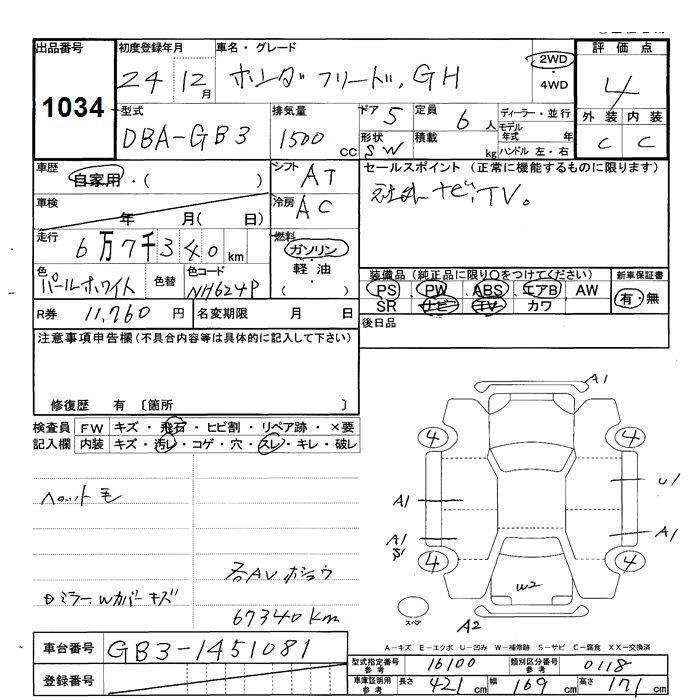 出品番号 初度登録年月 車名・グレード 評価点
1034 24 12月 ホンダ フリード, GH 2WD・4WD 4
型式 排気量 ドア 5 定員 6人 ディーラー・並行 外装 内装
DBA-GB3 1500cc 形状 SW 積載 kg モデル年式 年 C C
ハンドル 左・右
車歴 自家用・( ) シフト AT セールスポイント (正常に機能するものに限ります)
車検 年 月( 日) 冷房 AC 社外ナビ, TV。
走行 6万7千340km 燃料 ガソリン・軽油・( )
色 パールホワイト 色替 色コード NH624P
装備品(純正品に限り○をつけてください) 新車保証書
PS PW ABS エアB AW 有・無
SR ナビ TV カワ
R券 11,760円 名変期限 月 日 後日品
注意事項申告欄(不具合内容等は具体的に記入して下さい)
修復歴 有 〔箇所 〕
検査員 FW キズ・飛石・ヒビ割・リペア跡・×要
記入欄 内装 キズ・汚レ・コゲ・穴・スレ・キレ・破レ
ペット毛
Dミラー、Wカバーキズ
67340km
A1
4 4
A1 U1
A1 S1 A1
4 4
W2
スペア A2
A-キズ E-エクボ U-凹み W-補修跡 S-サビ C-腐食 XX-交換済
車台番号 GB3-1451081
登録番号
型式指定番号 参考 16100 類別区分番号 参考 0118
車庫証明用 参考 長さ 421cm 幅 169cm 高さ 171cm